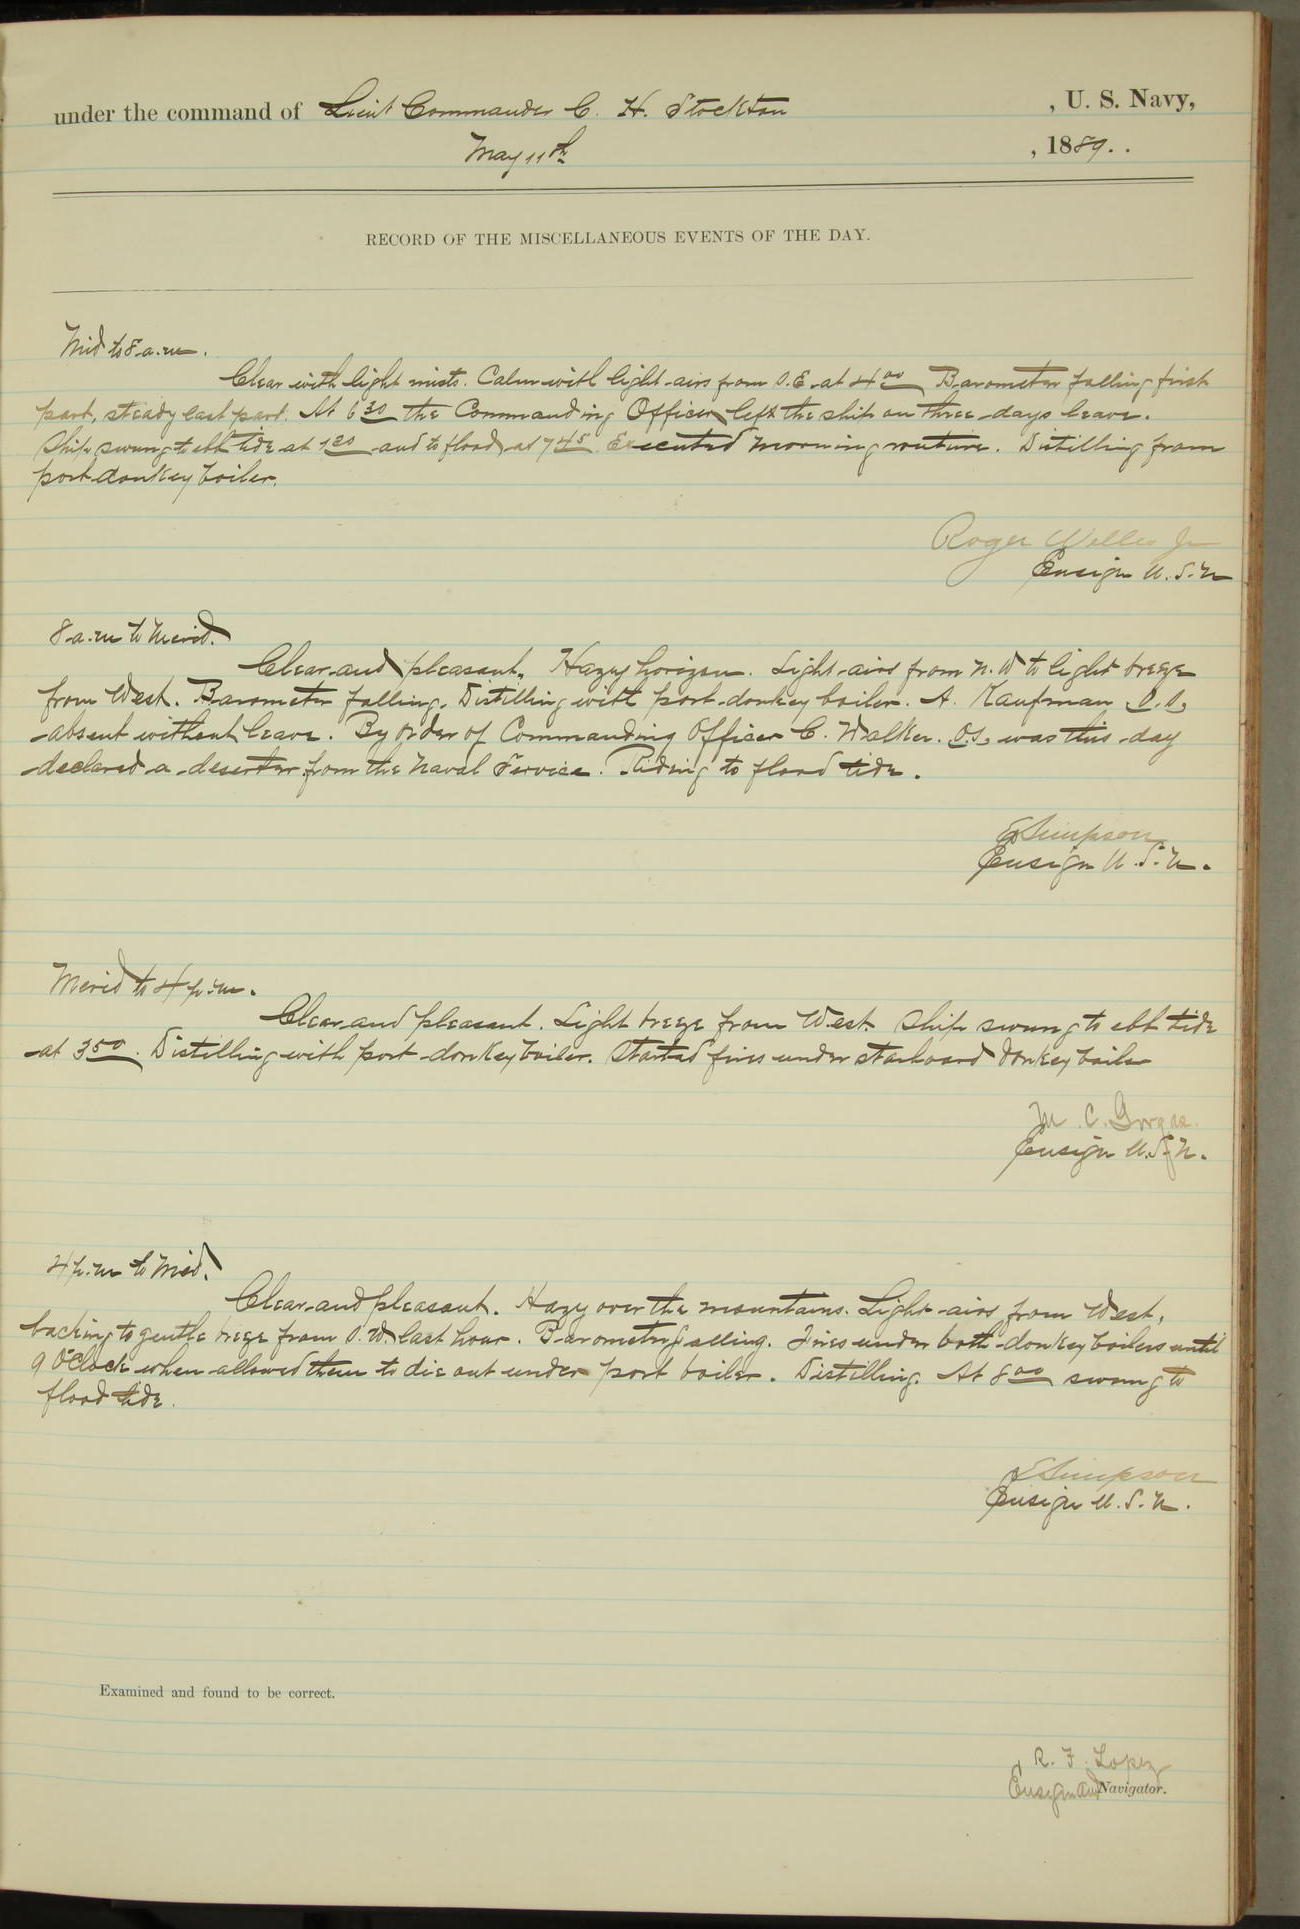 under the command of Lieut Commander C. H. Stockton , U. S. Navy,
May 11th , 1889..
RECORD OF THE MISCELLANEOUS EVENTS OF THE DAY.
Mid to 8 a.m.
Clear with light mists. Calm with light airs from S.E. at 4 00 Barometer falling first
part, steady last part. At 6 30 the Commanding Officer left the ship on three days leave.
Ship swung to ebb tide at 1 20 and to flood at 7 45. Executed morning routine. Distilling from
port donkey boiler.
Roger Welles Jr
Ensign U.S.N
8 a.m to Merid.
Clear and pleasant. Hazy horizon. Light airs from N.W to light breeze
from West. Barometer falling. Distilling with port donkey boiler. A. Kaufman
absent without leave. By order of Commanding Officer C. Walker. O.S. was this day
declared a deserter from the Naval Service. Riding to flood tide.
E Simpson
Ensign U.S.N.
Merid to 4 p.m.
Clear and pleasant. Light breeze from West. Ship swung to ebb tide
at 3 50. Distilling with port donkey boiler. Started fires under starboard donkey boiler
M. C. Gorgas.
Ensign U.S.N.
4 p.m to Mid.
Clear and pleasant. Hazy over the mountains. Light airs from West,
backing to gentle breeze from S.W. last hour. Barometer falling. Fires under both donkey boilers until
9 O'Clock when allowed them to die out under port boiler. Distilling. At 8 00 swung to
flood tide.
E Simpson
Ensign U.S.N.
Examined and found to be correct.
R. F. Lopez
Ensign and Navigator.